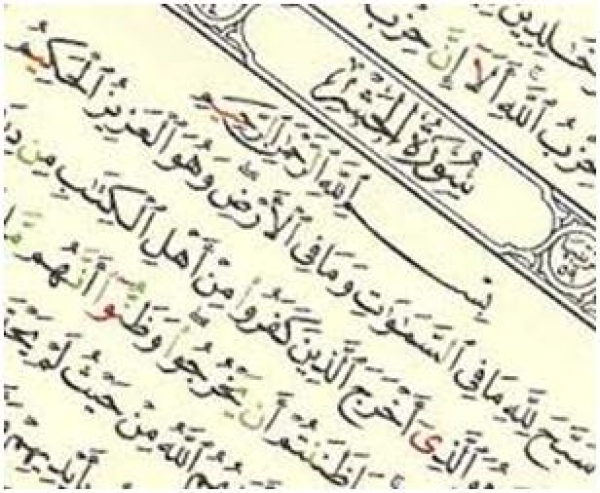 خَٰلِدِينَ
حِزْبُ ٱللَّهِ أَلَآ إِنَّ حِزْبَ
سُورَةُ الْحَشْرِ
بِسْمِ ٱللَّهِ ٱلرَّحْمَٰنِ ٱلرَّحِيمِ
سَبَّحَ لِلَّهِ مَا فِي ٱلسَّمَٰوَٰتِ وَمَا فِي ٱلْأَرْضِ وَهُوَ ٱلْعَزِيزُ ٱلْحَكِيمُ
هُوَ ٱلَّذِىٓ أَخْرَجَ ٱلَّذِينَ كَفَرُوا۟ مِنْ أَهْلِ ٱلْكِتَٰبِ مِن
ظَنَنتُمْ أَن يَخْرُجُوا۟ وَظَنُّوٓا۟ أَنَّهُم
ٱللَّهُ مِنْ حَيْثُ لَمْ
بِأَيْدِيهِمْ